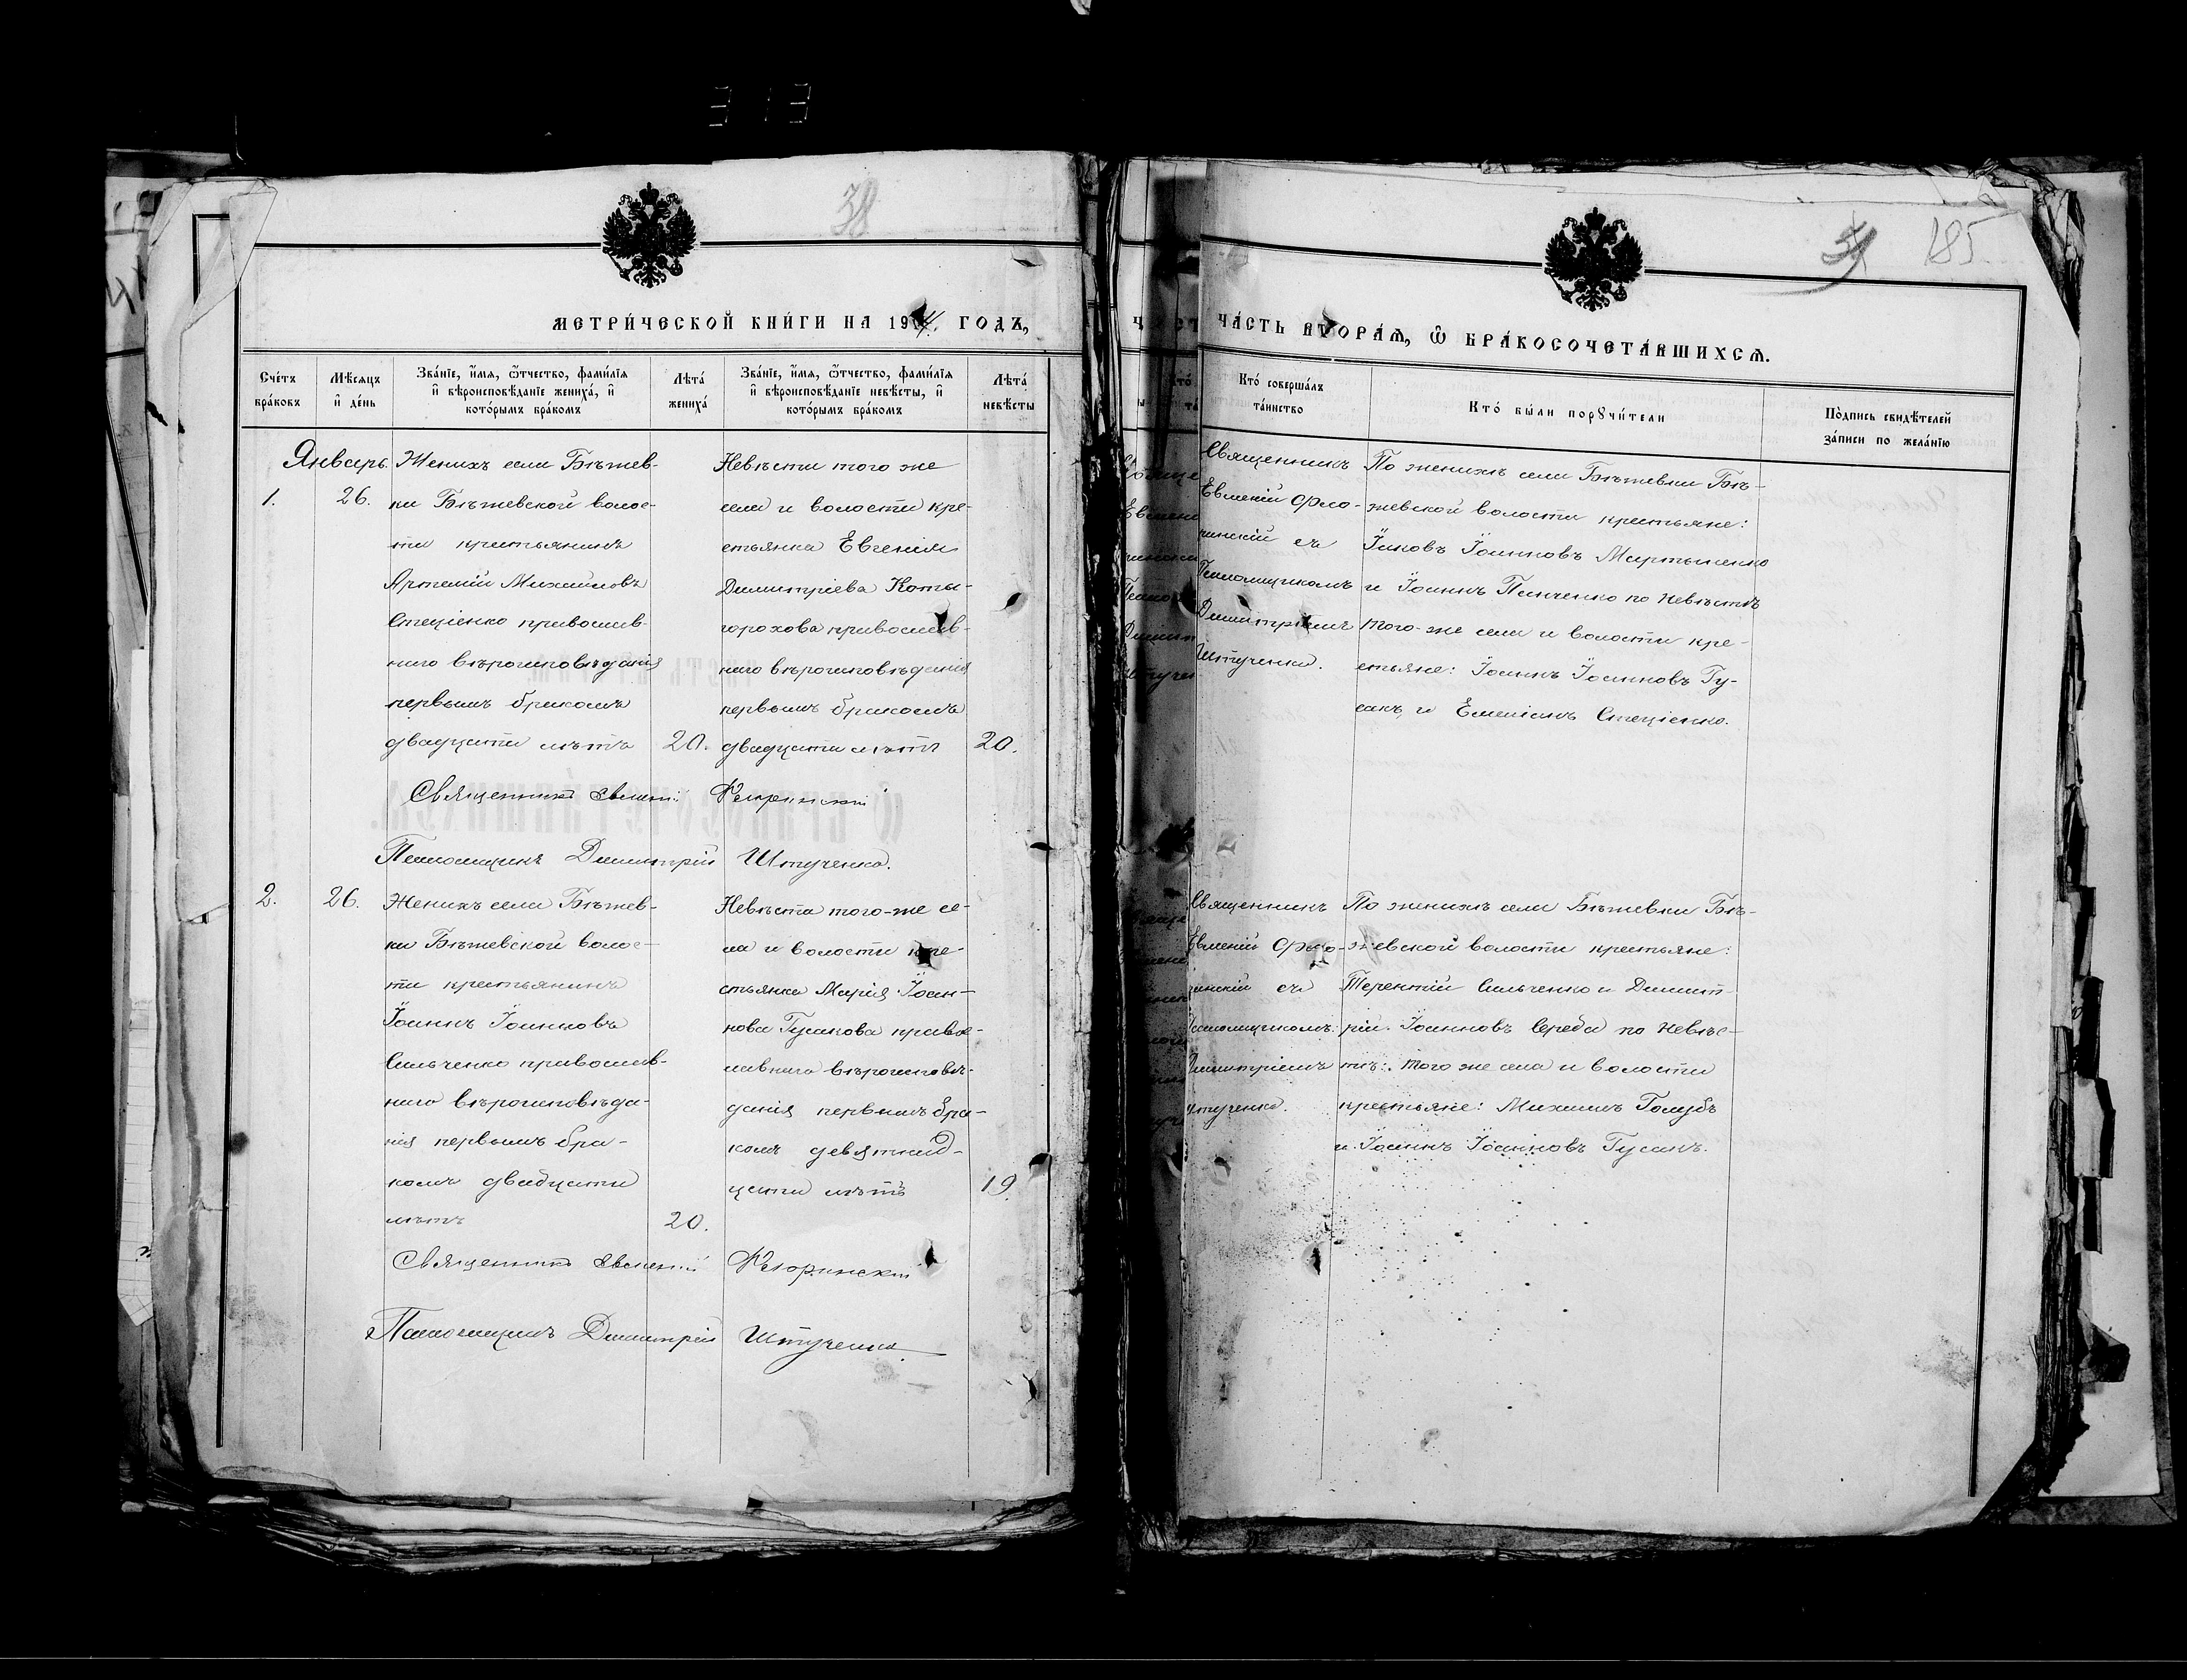 313
38
МЕТРИ́ЧЕСКОЙ КНИ́ГИ НА 19 4. ГОДЪ,
Сче́тъ бра́ковъ
Мѣ́сяцъ и҆ де́нь
Зва́нїе, и҆́мя, ѻ҆́тчество, фами́лїя
и҆ вѣроисповѣ́данїе жениха́, и҆
кото́рымъ бра́комъ
Лѣта́ жениха́
Зва́нїе, и҆́мя, ѻ҆́тчество, фами́лїя
и҆ вѣроисповѣ́данїе невѣ́сты, и҆
кото́рымъ бра́комъ
Лѣта́ невѣ́сты
Январь.
1.
26.
Женихъ села Бѣжев-
ки Бѣжевской волос-
ти крестьянинъ
Артемій Михаиловъ
Стеціенко православ-
наго вѣроисповѣданія
первымъ бракомъ
двадцати лѣтъ
20.
Невѣста того же
села и волости кре-
стьянка Евгенія
Димитріева Коты-
горохова православ-
наго вѣроисповѣданія
первымъ бракомъ
двадцати лѣтъ
20.
Священникъ Евменій
Псаломщикъ Димитрій Штученко.
2.
26.
Женихъ села Бѣжев-
ки Бѣжевской волос-
ти крестьянинъ
Іоаннъ Іоанновъ
Сильченко православ-
наго вѣроисповѣда-
нія первымъ бра-
комъ двадцати
лѣтъ
20.
Невѣста того-же се-
ла и волости кре-
стьянка Марія Іоан-
нова Гусакова право-
славнаго вѣроисповѣ-
данія первымъ бра-
комъ девятнад-
цати лѣтъ
19.
Священникъ Евменій
Псаломщикъ Димитрій Штученко
185
ЧА́СТЬ ВТОРА́Я, Ѽ БРА́КОСОЧЕТА́ВШИХСЯ.
Кто́ соверша́лъ
та́инство
Кто́ бы́ли порꙋчи́тели
По́дпись свидѣ́телей
за́писи по жела́нїю
Священникъ
Евменій
съ
Псаломщикомъ
Димитріемъ
Штученко.
По женихѣ села Бѣжевки Бѣ-
жевской волости крестьяне:
Іаковъ Іоанновъ Мартыненко
и Іоаннъ Панченко по невѣстѣ
того-же села и волости кре-
стьяне: Іоаннъ Іоанновъ Гу-
сакъ и Емеліанъ Стеціенко.
Священникъ
Евменій
съ
Псаломщикомъ
Димитріемъ
Штученко.
По женихѣ села Бѣжевки Бѣ-
жевской волости крестьяне:
Терентій Сильченко и Димит-
рій Іоанновъ Середа по невѣс-
тѣ: того же села и волости
крестьяне: Михаилъ Голубъ
и Іоаннъ Іоанновъ Гусакъ.